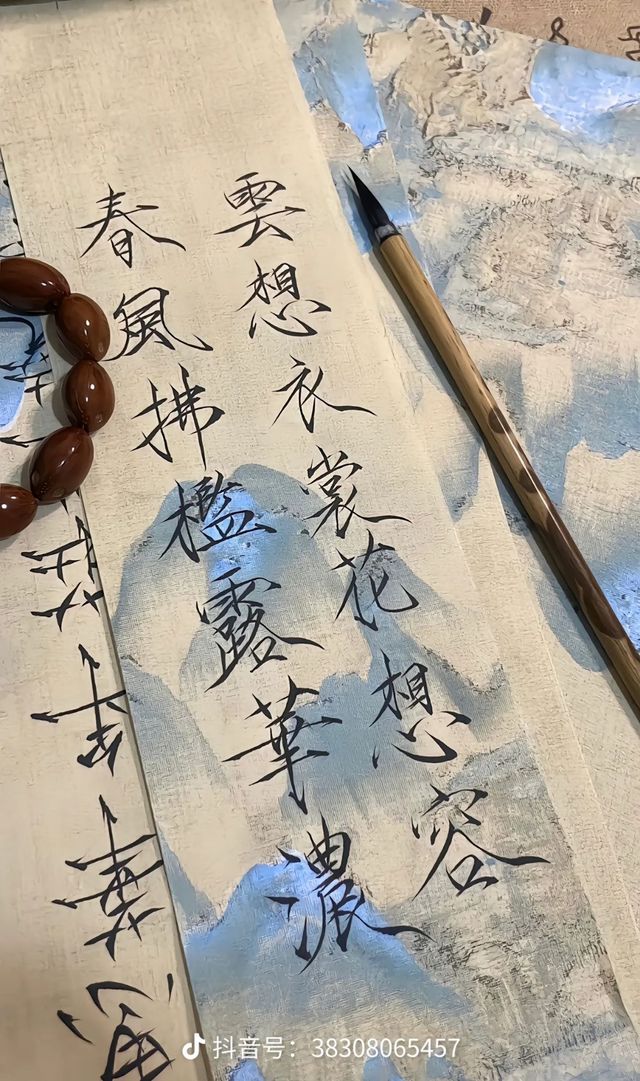 雲想衣裳花想容
春風拂檻露華濃
抖音号：38308065457